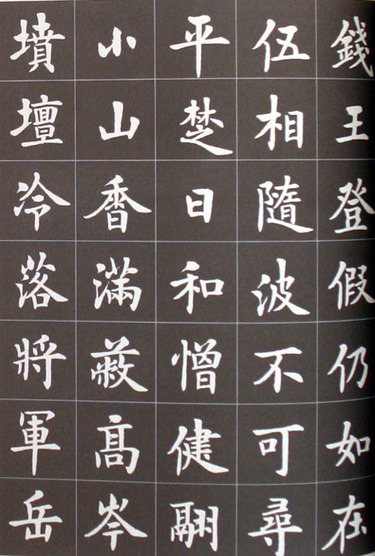 錢王登假仍如在
伍相隨波不可尋
平楚日和憎健翮
小山香滿蔽高岑
墳壇冷落將軍岳